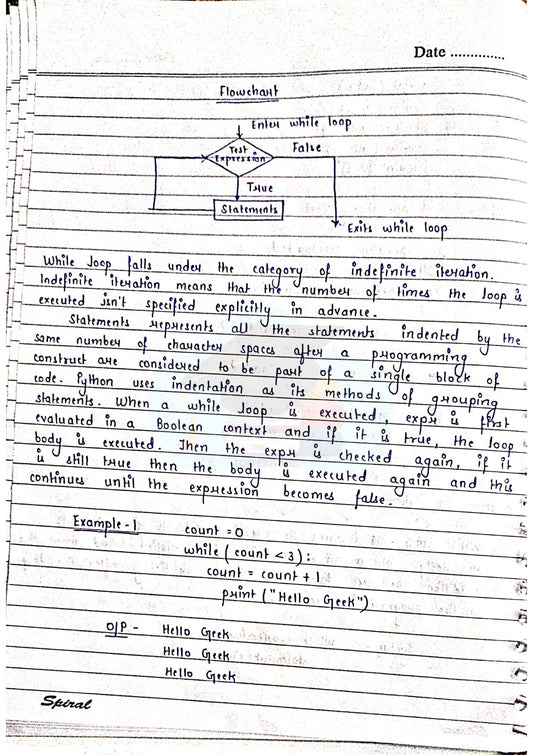 Date .............
Flowchart
Enter while loop
Test
Expression
False
True
Statements
Exits while loop
While loop falls under the category of indefinite iteration.
Indefinite iteration means that the number of times the loop is
executed isn't specified explicitly in advance.
Statements represents all the statements indented by the
same number of character spaces after a programming
construct are considered to be part of a single block of
code. Python uses indentation as its methods of grouping
statements. When a while loop is executed, expr is first
evaluated in a Boolean context and if it is true, the loop
body is executed. Then the expr is checked again, if it
is still true then the body is executed again and this
continues until the expression becomes false.
Example-1 count = 0
while (count < 3):
count = count + 1
print ("Hello Geek")
O/P - Hello Geek
Hello Geek
Hello Geek
Spiral